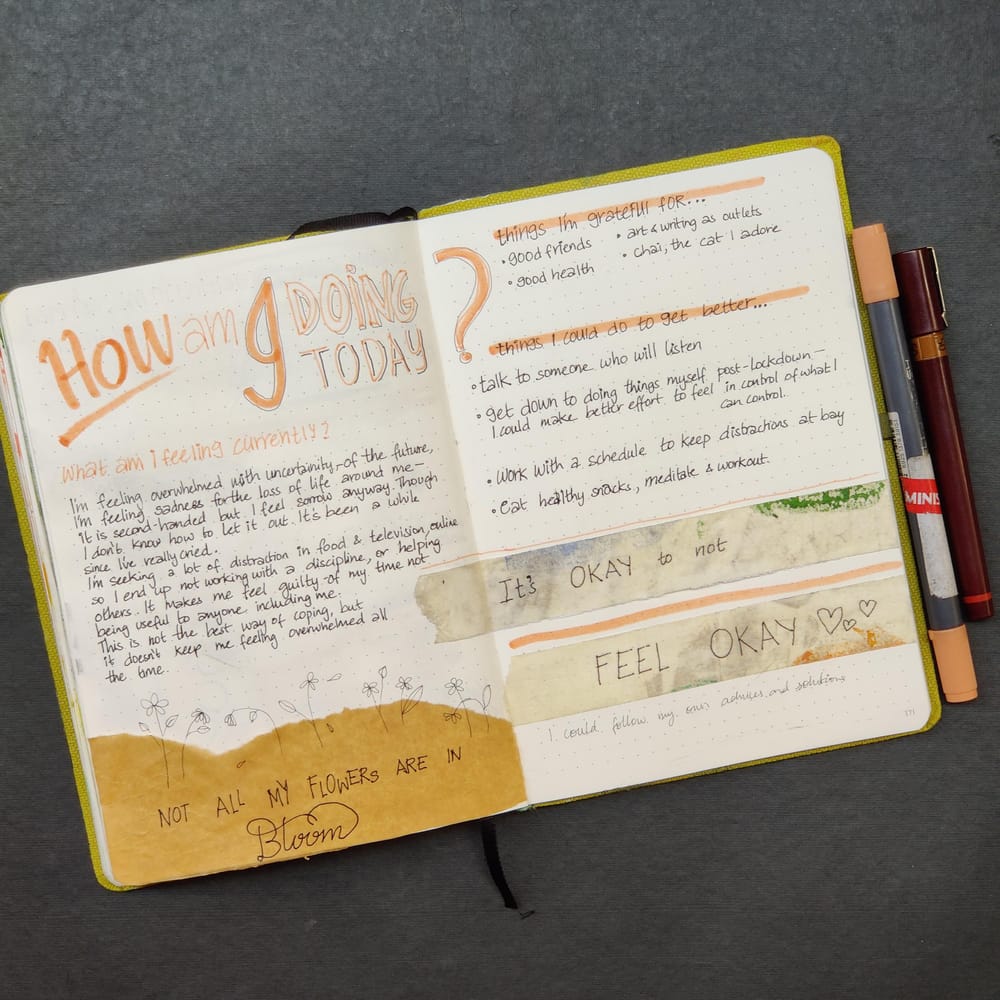 HOW am I DOING
TODAY
?
What am I feeling currently?
I'm feeling overwhelmed with uncertainity, of the future,
I'm feeling sadness for the loss of life around me—
it is second-handed but I feel sorrow anyway. Though
I don't know how to let it out. It's been a while
since I've really cried.
I'm seeking a lot of distraction in food & television, online
so I end up not working with a discipline, or helping
others. It makes me feel guilty of my time not
being useful to anyone including me.
This is not the best way of coping, but
it doesn't keep me feeling overwhelmed all
the time.
NOT ALL MY FLOWERS ARE IN
Bloom
things I'm grateful for...
• good friends
• good health
• art & writing as outlets
• chai, the cat I adore
things I could do to get better...
• talk to someone who will listen
• get down to doing things myself post-lockdown—
I could make better effort to feel in control of what I
can control.
• Work with a schedule to keep distractions at bay
• Eat healthy snacks, meditate & workout.
It's OKAY to not
FEEL OKAY
I could follow my own advices and solutions
171
MINIS